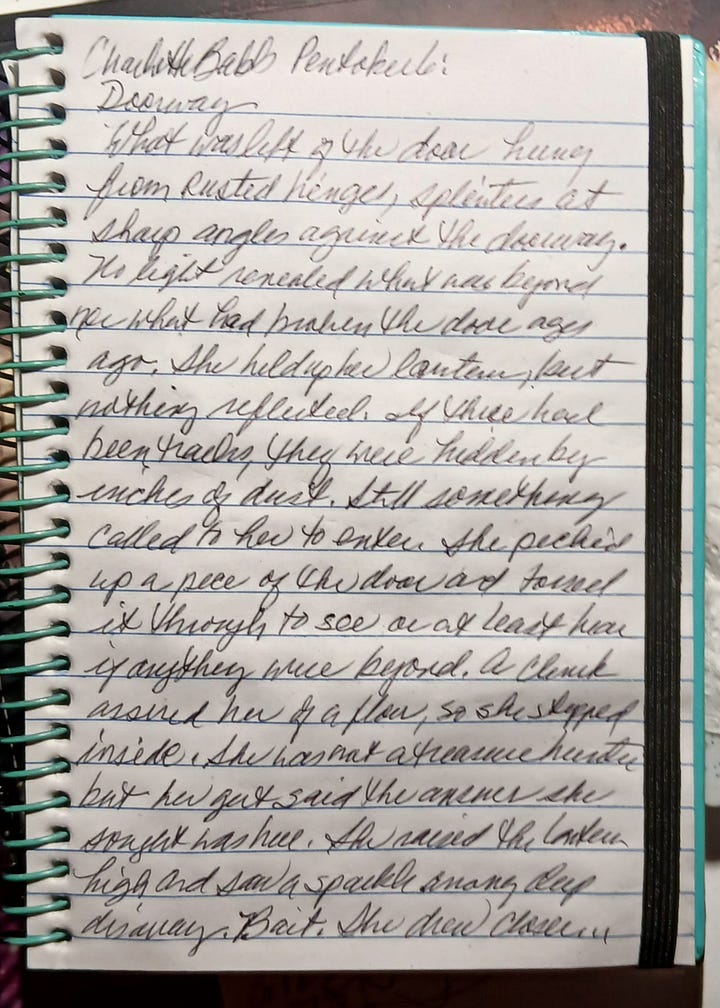 Charlotte Babb Pentakeli:
Doorway
What was left of the door hung
from rusted hinges, splinters at
sharp angles against the doorway.
No light revealed what was beyond
nor what had broken the door ages
ago. She held up her lantern, but
nothing reflected. If there had
been tracks, they were hidden by
inches of dust. Still something
called to her to enter. She picked
up a pece of the door and tossed
it through to see or at least hear
if anything were beyond. A clink
assured her of a floor, so she stepped
inside. She was not a treasure hunter
but her gut said the answer she
sought was here. She raised the lantern
high and saw a sparkle among deep
disarray. Bait. She drew closer...